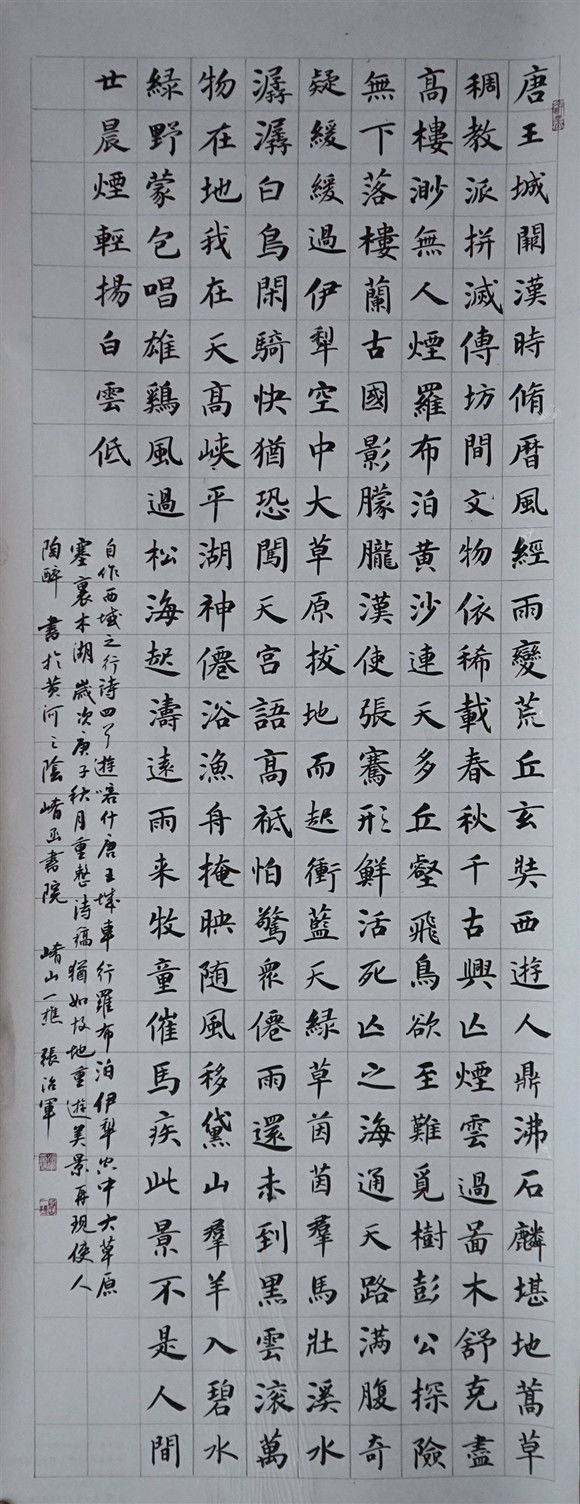 唐王城闕漢時脩曆風經雨變荒丘玄奘西遊人鼎沸石麟堪地蒿草
稠教派拼滅傳坊間文物依稀載春秋千古興亡煙雲過啚木舒克盡
高樓渺無人煙羅布泊黃沙連天多丘壑飛鳥欲至難覓樹彭公探險
無下落樓蘭古國影朦朧漢使張騫形鮮活死亡之海通天路滿腹奇
疑緩緩過伊犁空中大草原拔地而起衝藍天綠草茵茵羣馬壯溪水
潺潺白鳥閑騎快猶恐闖天宮語高袛怕驚衆僊雨還未到黑雲滾萬
物在地我在天高峽平湖神僊浴漁舟掩映随風移黛山羣羊入碧水
綠野蒙包唱雄鷄風過松海起濤遠雨来牧童催馬疾此景不是人間
廿晨煙輕揚白雲低
自作西域之行詩四首遊喀什唐王城車行羅布泊伊犁空中大草原
塞裏木湖歲次庚子秋月重整詩稿猶如故地重遊美景再現使人
陶醉 書於黃河之陰崤函書院 崤山一樵 張治軍